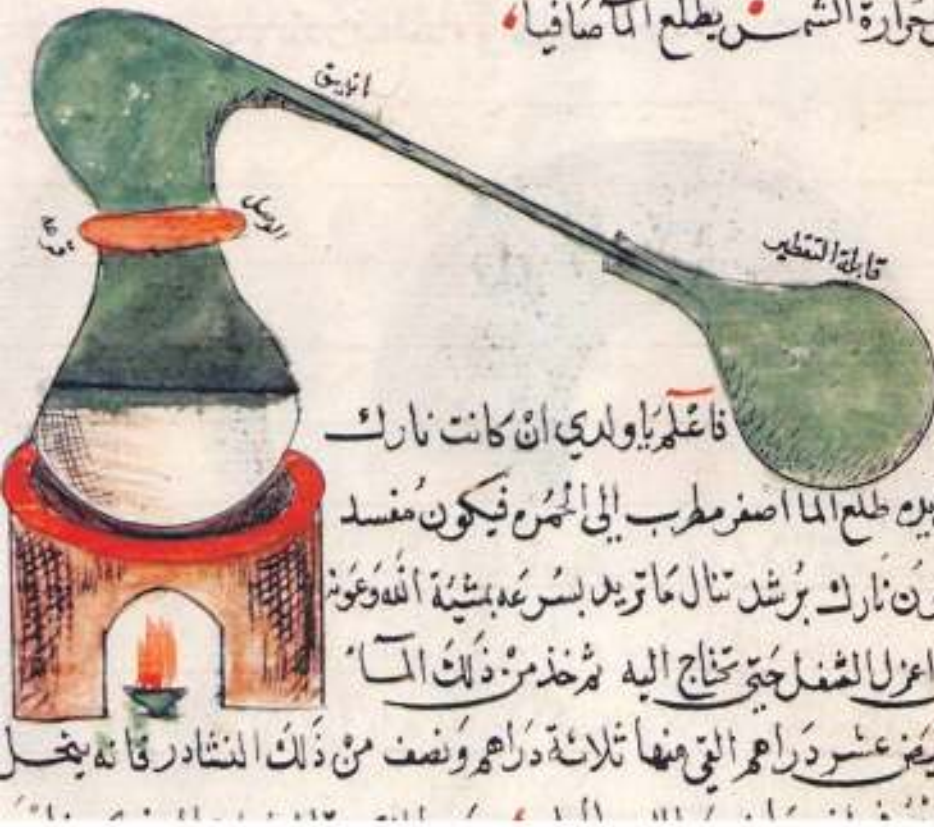 حرارة الشمس يطلع الماء صافيا
انابيق
الوصل
قرعة
قابلة التقطير
فاعلم يا ولدي ان كانت نارك
طلع الما اصفر مطرب إلى الحمره فيكون مفسد
نارك برشد تنال ما تريد بسرعه بمشية الله وعونه
اعزل الثفل حتى تحتاج اليه ثم خذ من ذلك المآء
عشر دراهم القي منها ثلاثة دراهم ونصف من ذلك النشادر فانه ينحل